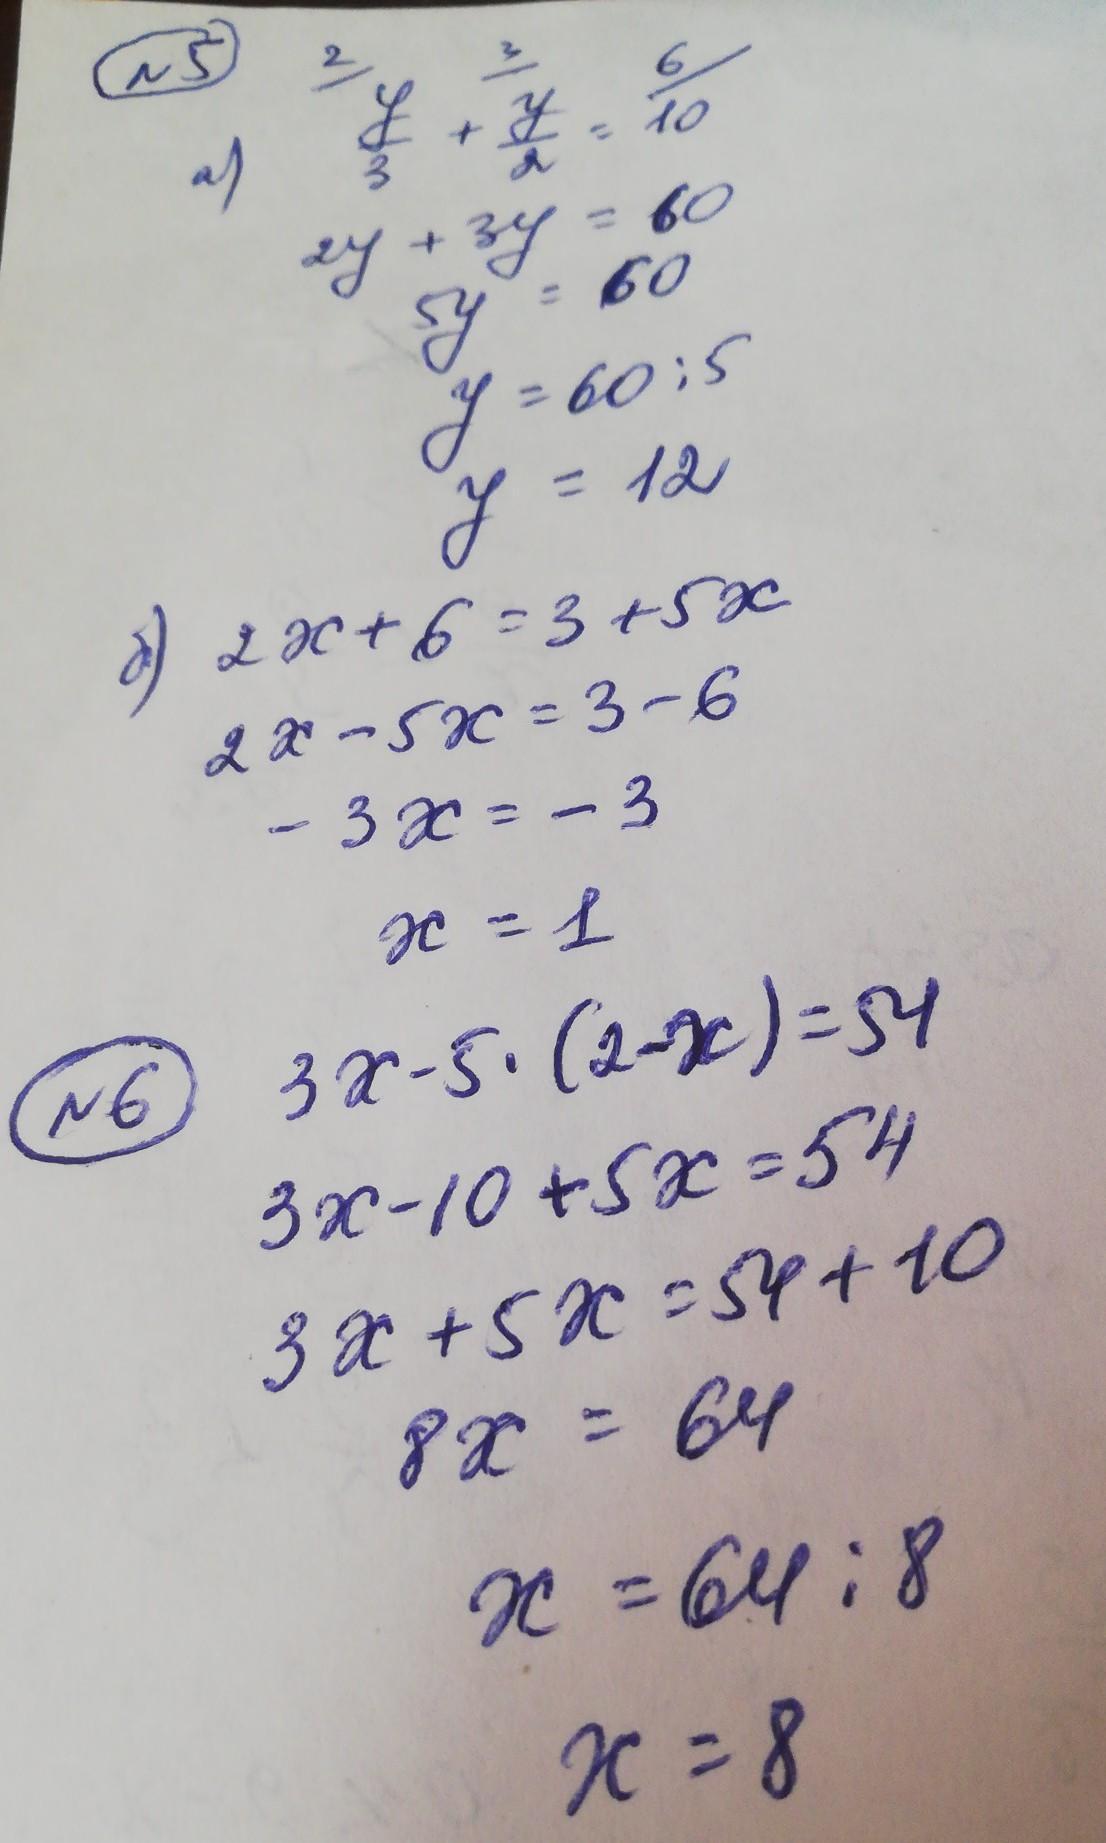 N5
2 3 6
а) y/3 + y/2 = 10
2y + 3y = 60
5y = 60
y = 60 : 5
y = 12
б) 2x + 6 = 3 + 5x
2x - 5x = 3 - 6
- 3x = - 3
x = 1
N6 3x - 5 · (2 - x) = 54
3x - 10 + 5x = 54
3x + 5x = 54 + 10
8x = 64
x = 64 : 8
x = 8